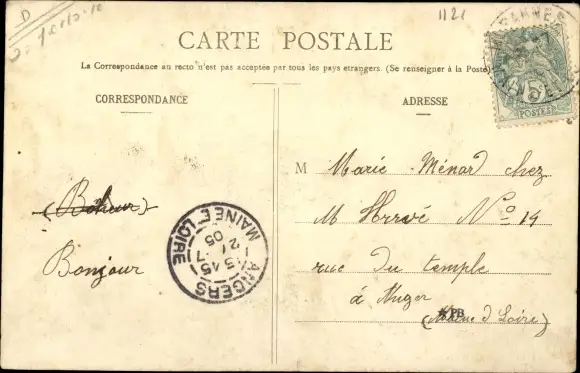 D
1121
CARTE POSTALE
La Correspondance au recto n'est pas acceptée par tous les pays étrangers. (Se renseigner à la Poste)
CORRESPONDANCE
ADRESSE
POSTES
M Marie Ménard chez
M Hervé No 19
rue du temple
à Anger
(Maine d Loire)
Bonjour
ANGERS
MAINE-ET-LOIRE
3 45
21 -7
05
PB